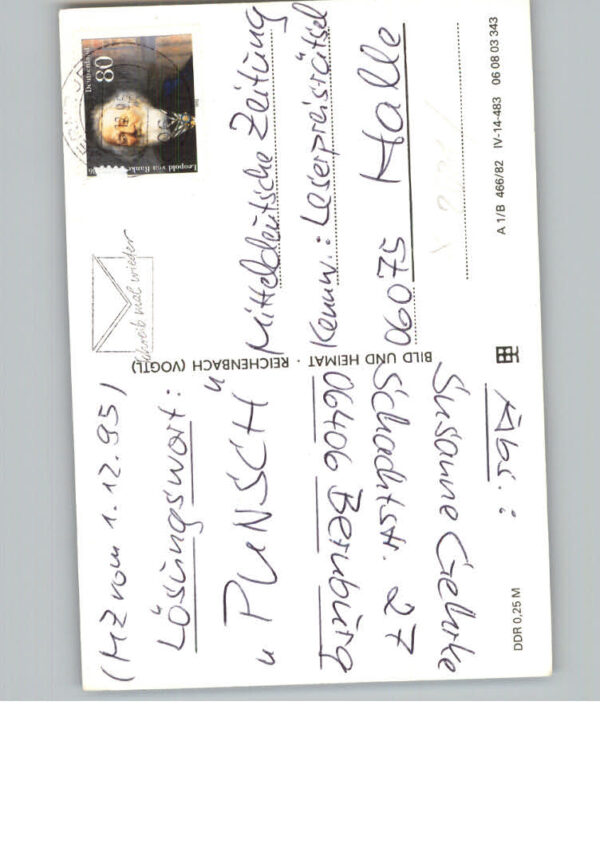 (MZ vom 1.12.95)
Lösungswort:
"PUNSCH"
06406 Bernburg
Schachtstr. 27
Susanne Gehrke
Abs.:
DDR 0,25 M
BILD UND HEIMAT · REICHENBACH (VOGTL)
schreib mal wieder
Deutschland
80
Leopold von Ranke
Mitteldeutsche Zeitung
Kennw.: Leserpreisrätsel
06075 Halle
A 1/B 466/82 IV-14-483 06 08 03 343